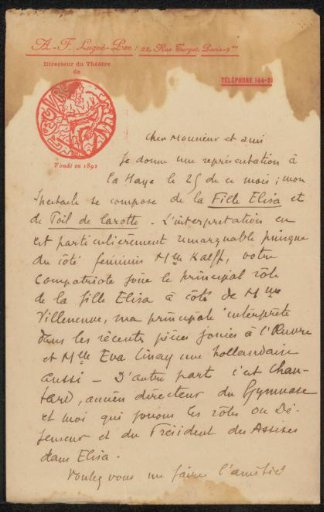 A.-F. Lugné-Poe / 22, Rue Turgot, Paris-9me
Directeur du Théâtre
de
TÉLÉPHONE
Fondé en 1892
Cher Monsieur et ami
Je donne une représentation à
la Haye le 25 de ce mois ; mon
spectacle se compose de la Fille Elisa et
de Poil de Carotte. L'interprétation en
est particulièrement remarquable puisque
du côté féminin Mlle Kalff, votre
compatriote joue le principal rôle
de la fille Elisa à côté de Mme
Villeneuve, ma principale interprète
dans les récentes pièces jouées à l'Œuvre
et Mlle Eva une hollandaise
aussi — D'autre part c'est Chau-
tard, ancien directeur du Gymnase
et moi qui jouons les rôles du Dé-
fenseur et du Président des Assises
dans Elisa.
Voulez vous me faire l'amitié